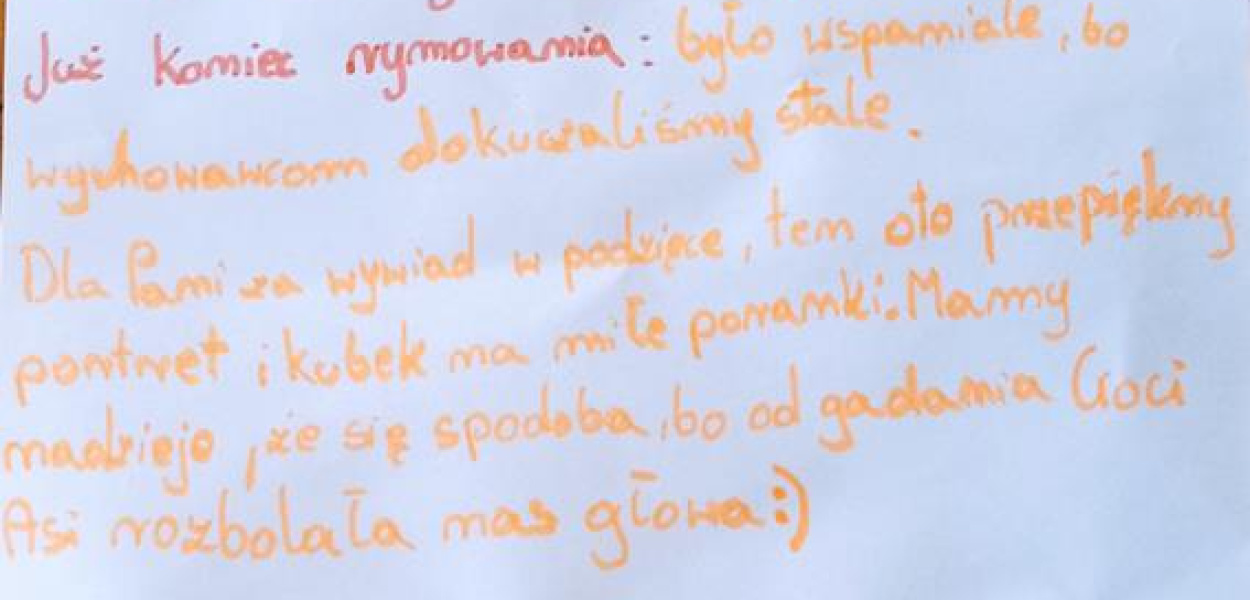 Już koniec rymowania: było wspaniale, bo
wychowawcom dokuczaliśmy stale.
Dla Pani za wywiad w podzięce, ten oto przepiękny
portret i kubek na miłe poranki. Mamy
nadzieje, że się spodoba, bo od gadania Cioci
Asi rozbolała nas głowa:)